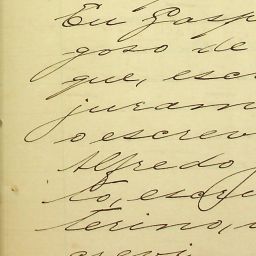 Eu Gasp
goso de
que, escr
juram
o escrev
Alfredo
to, escri
terino,
crevi